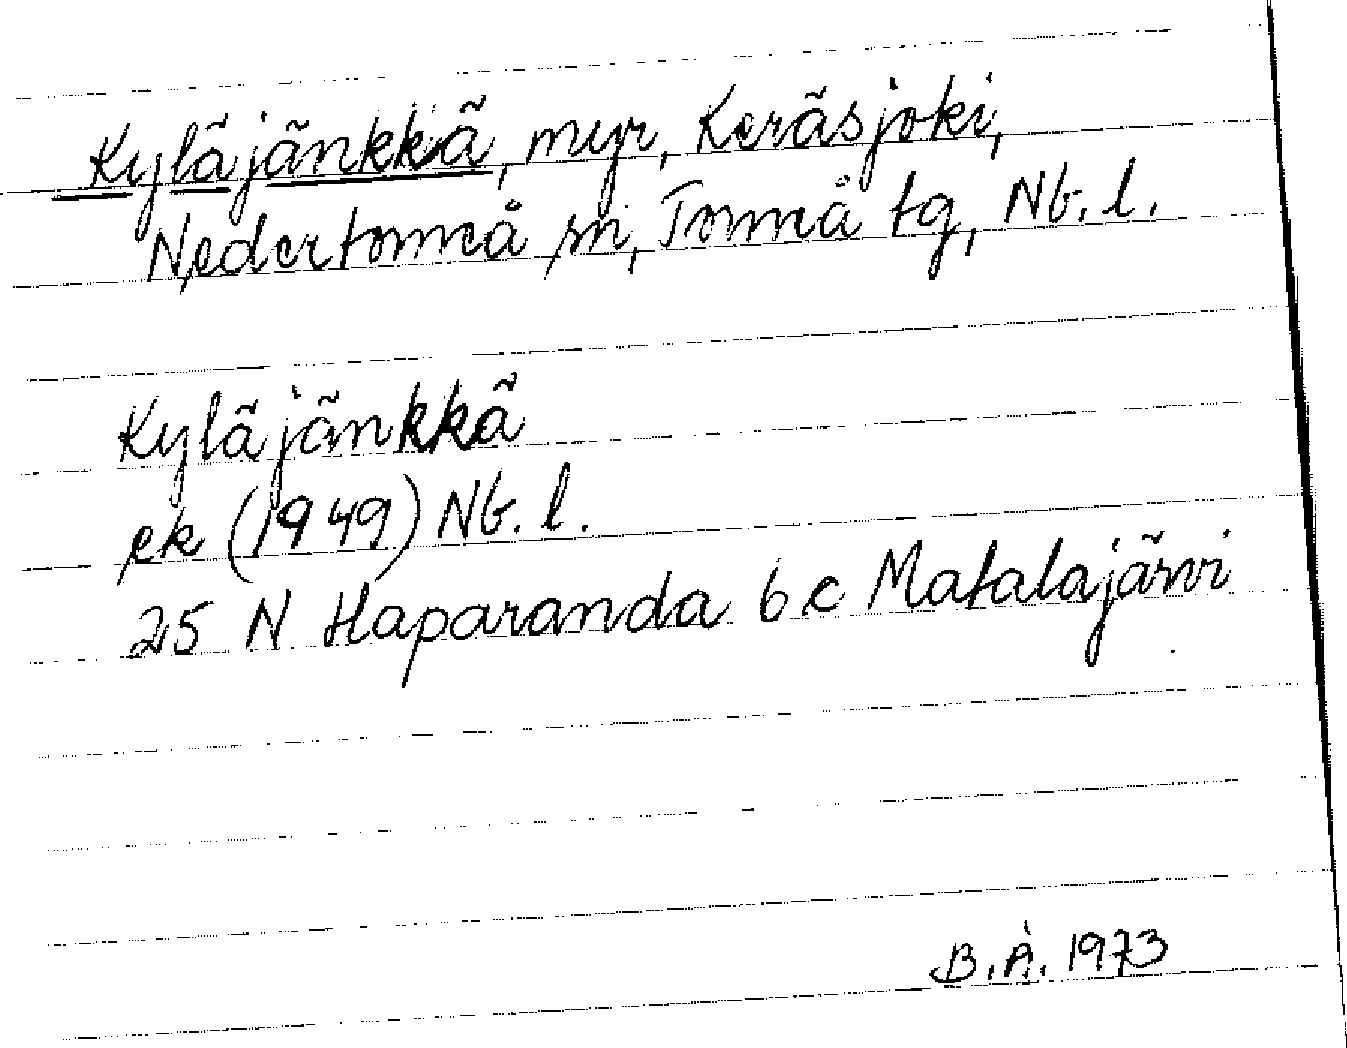 Kyläjänkkä, myr, Keräsjoki,
Nedertorneå sn, Torneå tg, Nb. l.
Kyläjänkkä
ek (1949) Nb. l.
25 N Haparanda 6 c Matalajärvi
B. Å. 1973